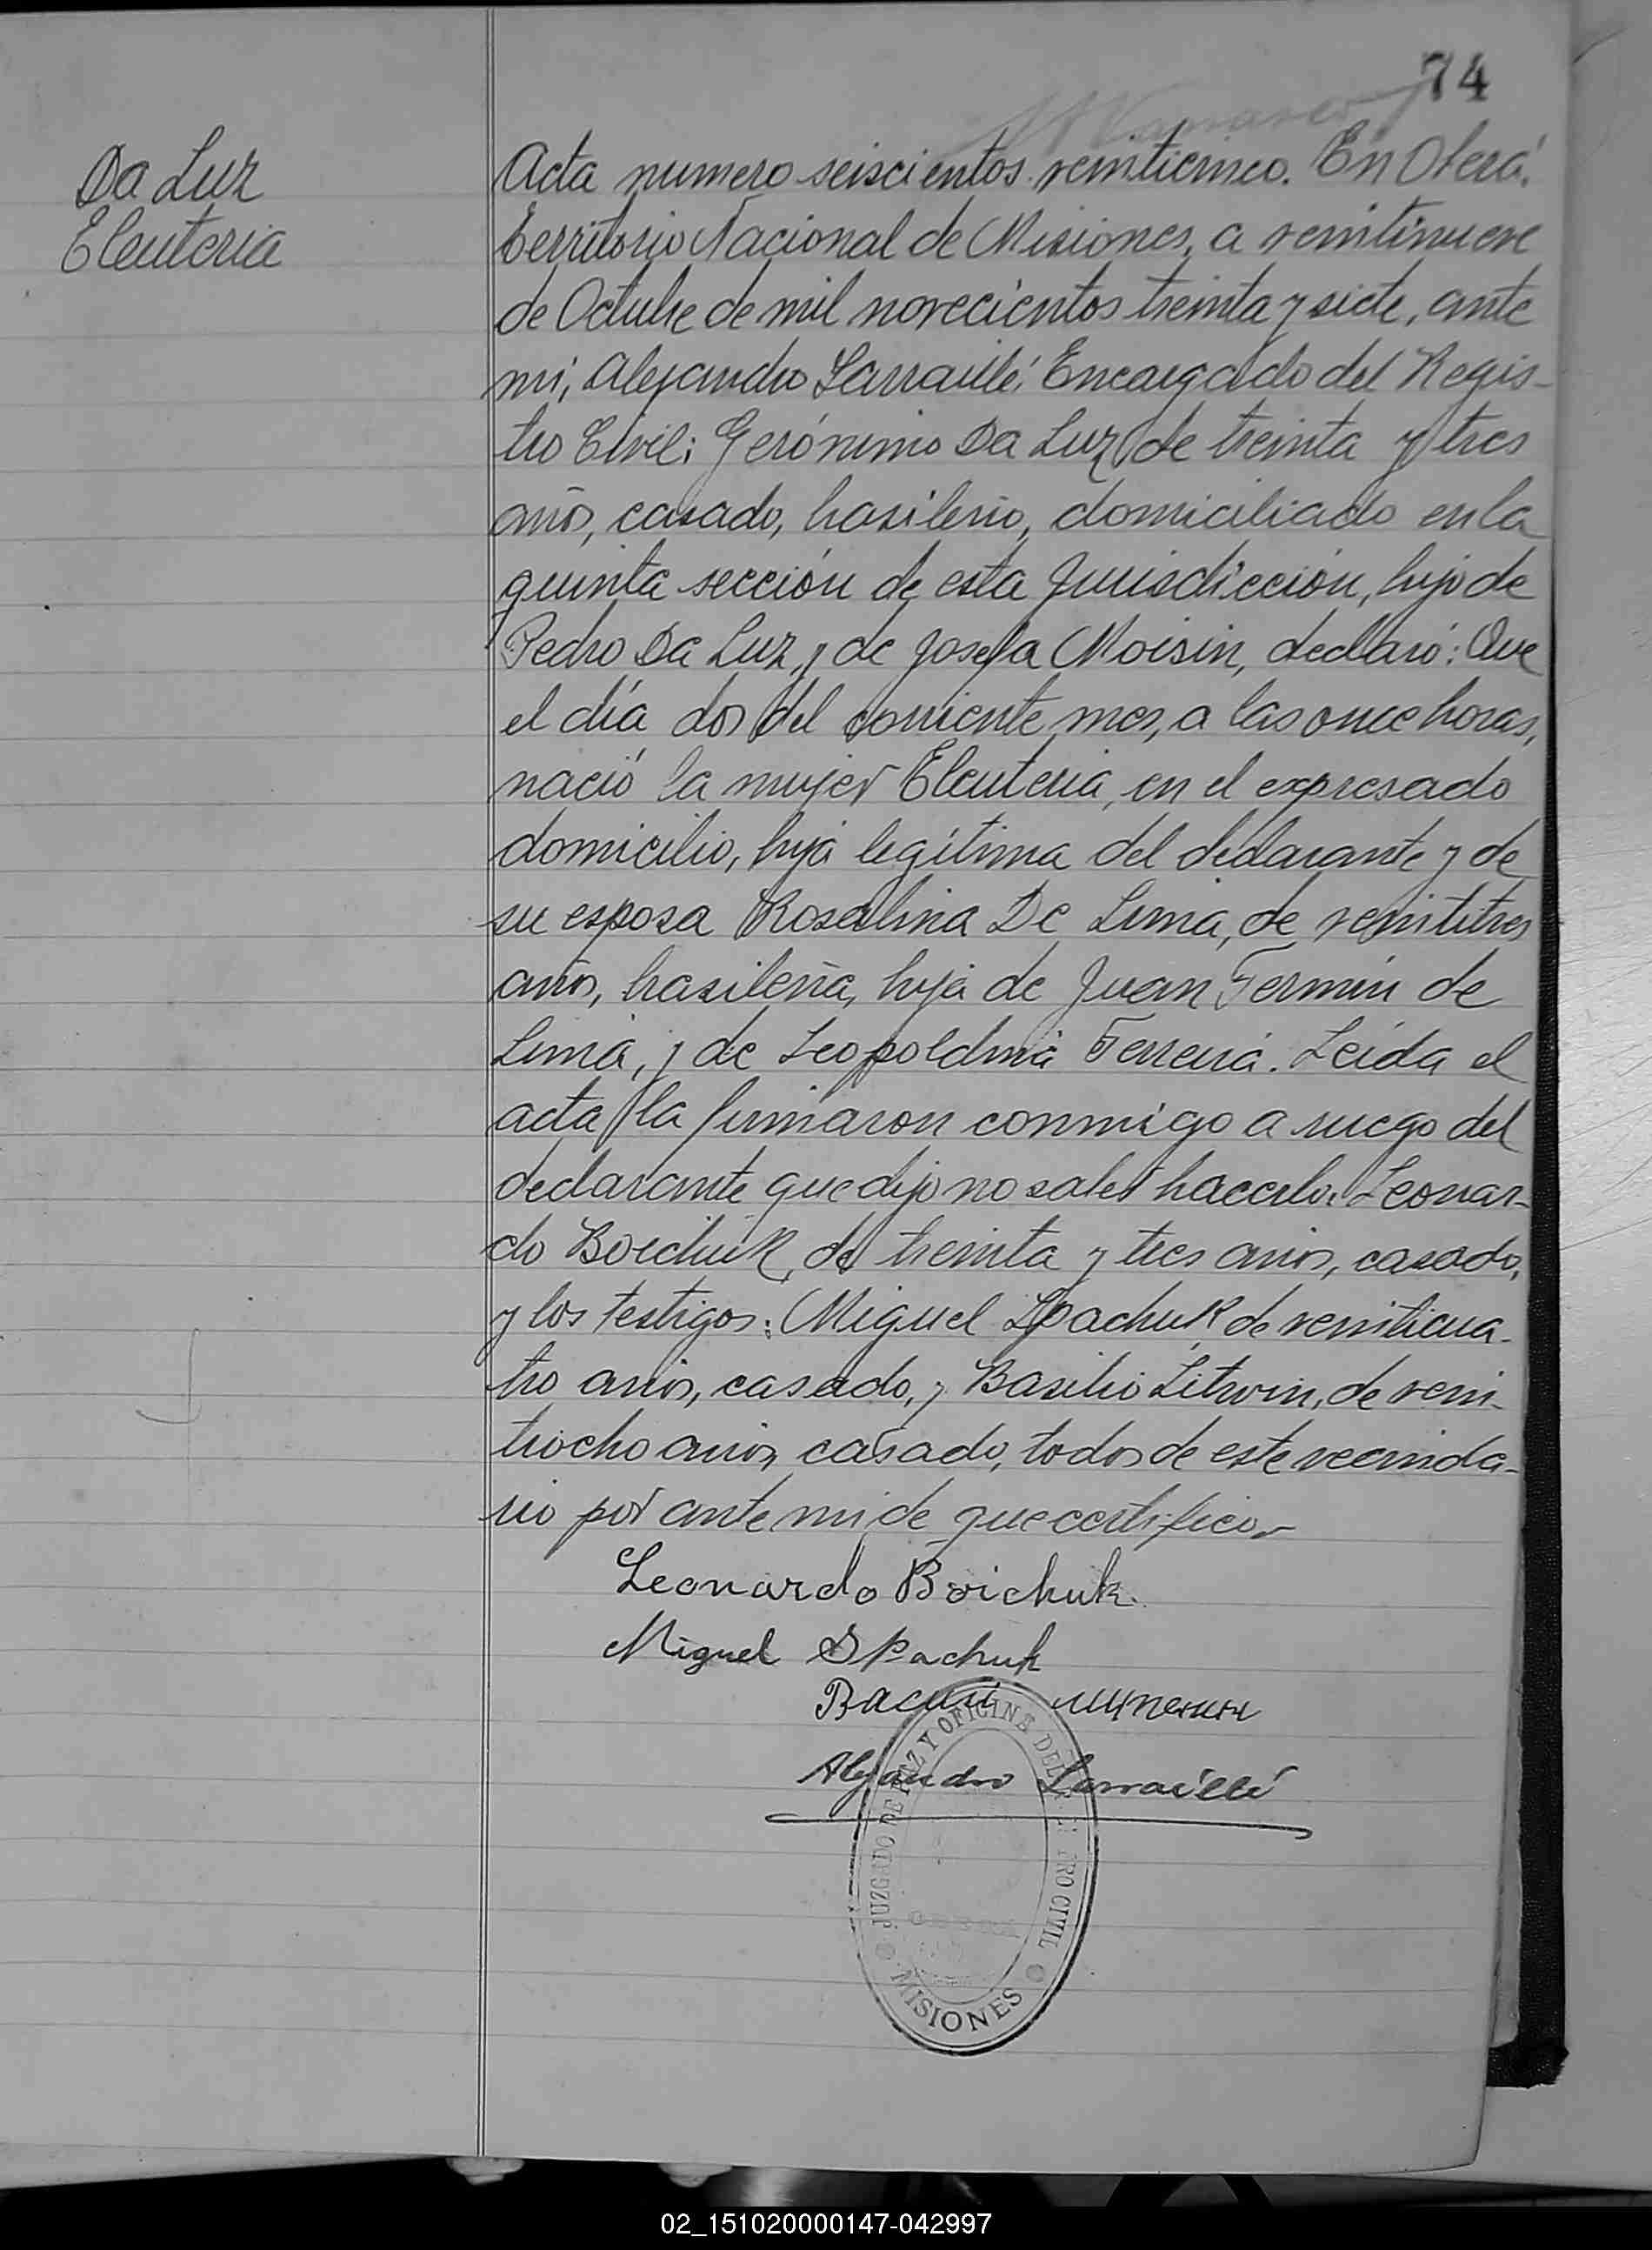 74
Da Luz
Eleuteria
Acta numero seiscientos veinticinco. En Oberá,
Territorio Nacional de Misiones, a veintinueve
de Octubre de mil novecientos treinta y siete, ante
mí, Alejandro Larraillé, Encargado del Regis-
tro Civil; Gerónimo Da Luz, de treinta y tres
años, casado, brasileño, domiciliado en la
quinta sección de esta Jurisdicción, hijo de
Pedro Da Luz, y de Josefa Moisin, declaró: Que
el día dos del corriente mes, a las once horas,
nació la mujer Eleuteria, en el expresado
domicilio, hija legítima del declarante y de
su esposa Rosalina De Lima, de veintitres
años, brasileña, hija de Juan Fermín de
Lima, y de Leopoldina Ferreira. Leída el
acta la firmaron conmigo a ruego del
declarante que dijo no saber hacerlo: Leonar-
do Boichuk, de treinta y tres años, casado,
y los testigos: Miguel Spachuk de veinticua-
tro años, casado, y Basilio Litwin, de vein-
tiocho años, casado, todos de este vecinda-
rio por ante mi de que certifico.-
Leonardo Boichuk.
Miguel Spachuk
Василь
Alejandro Larraillé
JUZGADO DE PAZ Y OFICINA DEL REGISTRO CIVIL
OBERÁ
MISIONES
02_151020000147-042997